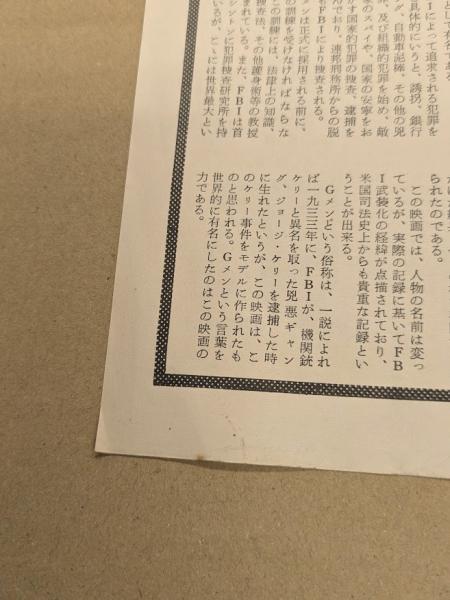 Iによって追求される犯罪を
具体的にいうと、誘拐、銀行
グ、自動車泥棒、その他の兇
罪、及び組織的犯罪を始め、敵
家のスパイや、国家の安寧をお
かす国家的犯罪の捜査、逮捕を
んでおり、連邦刑務所からの脱
もFBIにより捜査される。
メンは正式に採用される前に、
の訓練を受けなければならな
この訓練には、法律上の知識、
捜査法、その他護身術等の教授
まれている。また、FBIは首
シントンに犯罪捜査研究所を持
いるが、これは世界最大とい
られたのである。
この映画では、人物の名前は変っ
ているが、実際の記録に基いてFB
I武装化の経緯が点描されており、
米国司法史上からも貴重な記録とい
うことが出来る。
Gメンという俗称は、一説によれ
ば一九三三年に、FBIが、機関銃
ケリーと異名を取った兇悪ギャン
グ、ジョージ・ケリーを逮捕した時
に生れたというが、この映画は、こ
のケリー事件をモデルに作られたも
のと思われる。Gメンという言葉を
世界的に有名にしたのはこの映画の
力である。